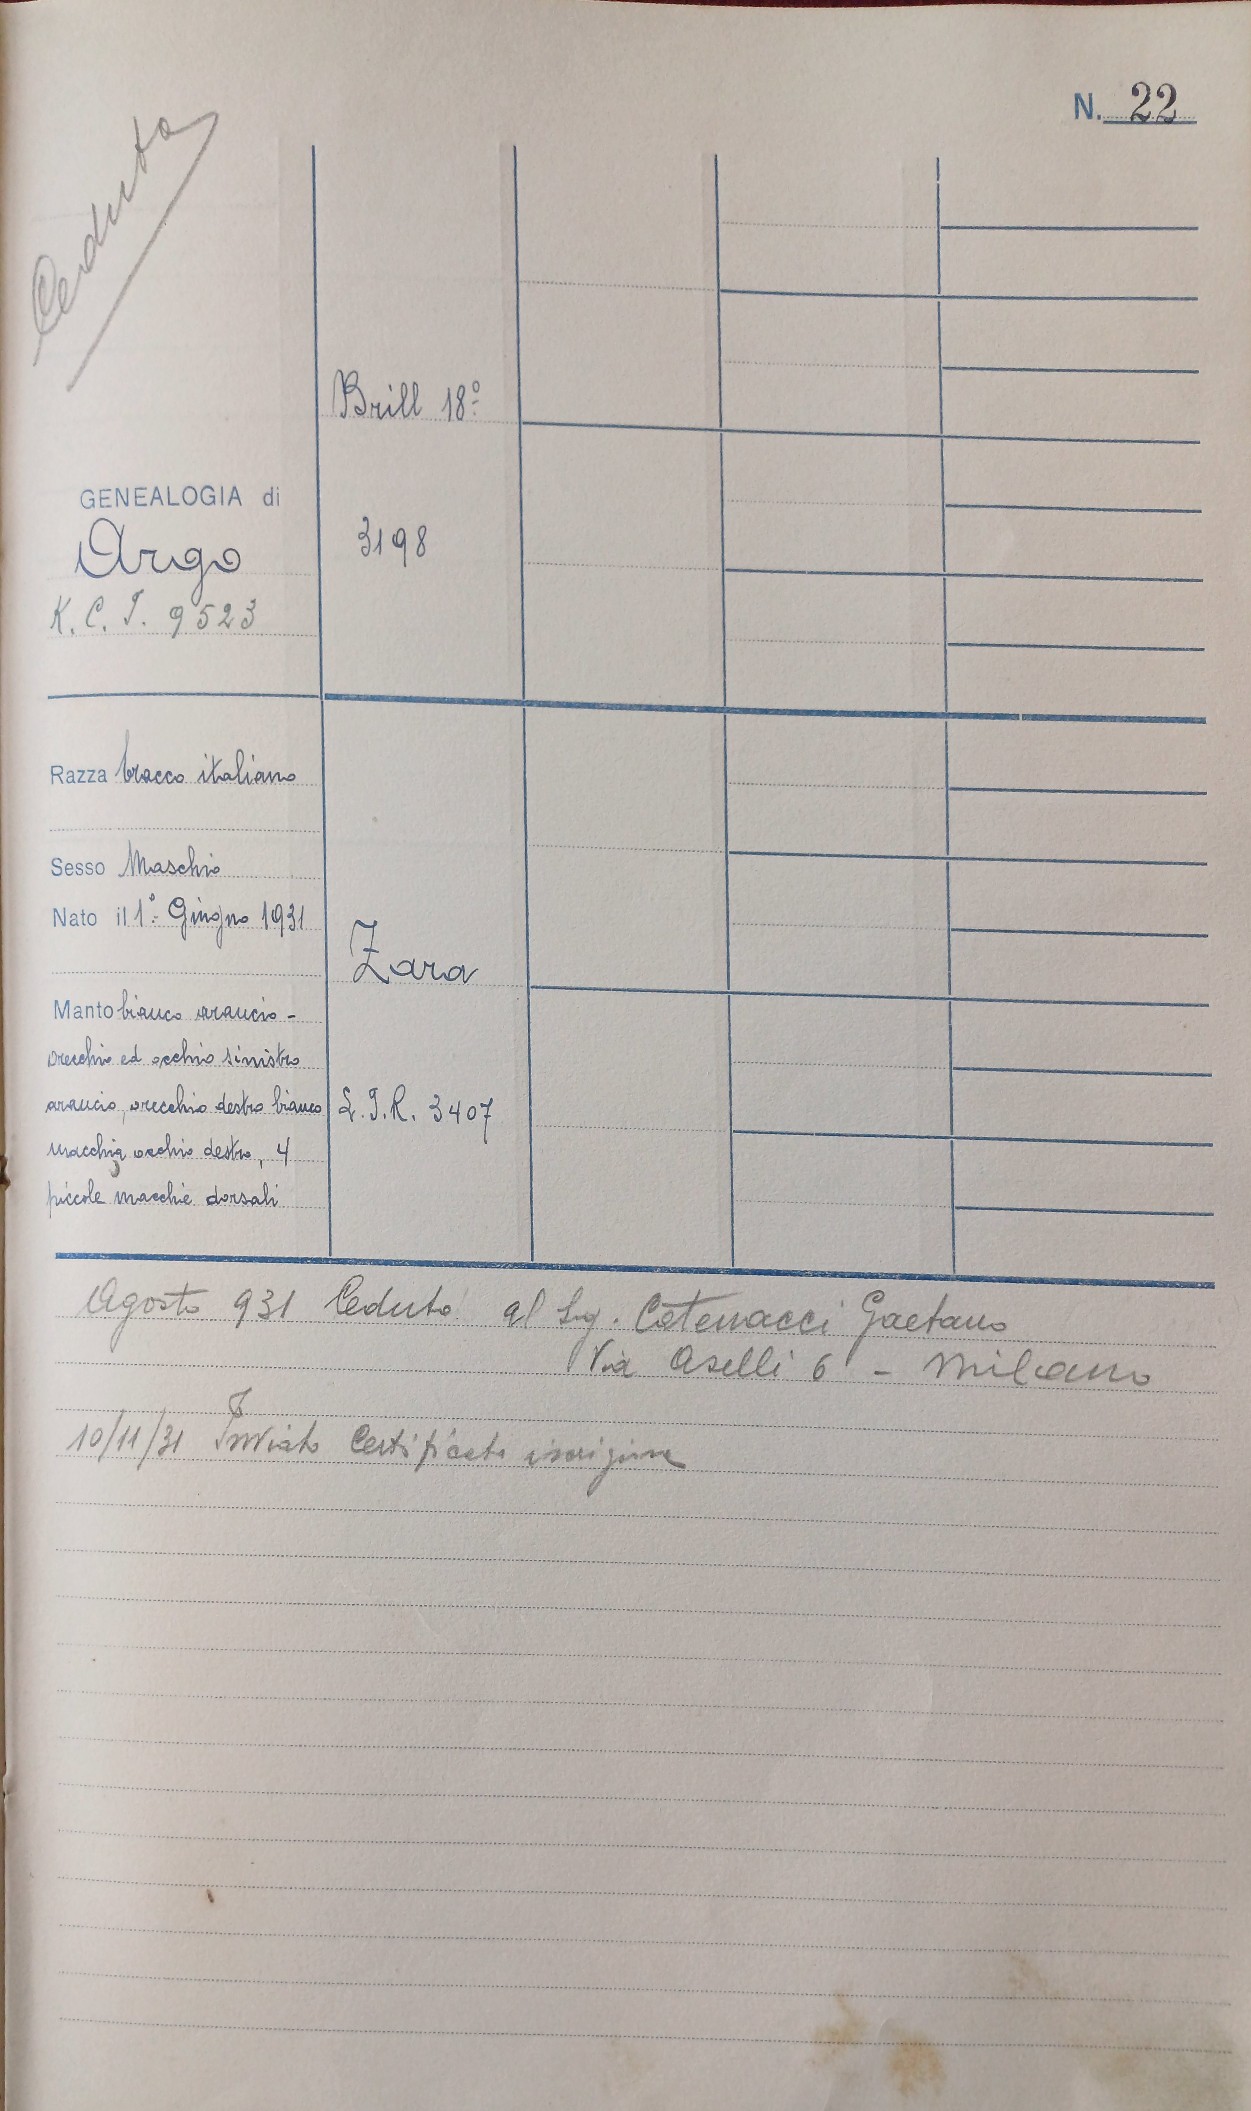 N. 22
Ceduto
Brill 18º
GENEALOGIA di
Argo
3198
K. C. I. 9523
Razza bracco italiano
Sesso Maschio
Nato il 1º Giugno 1931
Zara
Manto bianco arancio -
orecchio ed occhio sinistro
arancio, orecchio destro bianco
L.I.R. 3407
macchia occhio destro, 4
piccole macchie dorsali
Agosto 931 Ceduto al Sig. Catenacci Gaetano
Via Aselli 6 - Milano
10/11/31 Inviato Certificato iscrizione